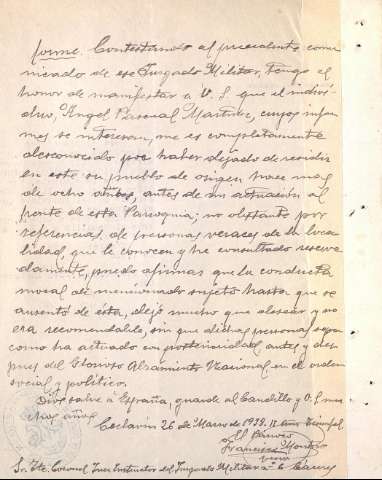 forme. Contestando al precedente comu
nicado de ese Juzgado Militar, tengo el
honor de manifestar a V. S. que el indivi
duo, Angel Pascual Martinez, cuyos infor
mes se interesan, me es completamente
desconocido por haber dejado de residir
en este su pueblo de origen hace mas
de ocho años, antes de mi actuación al
frente de esta Parroquia; no obstante por
referencias de personas veraces de la loca
lidad, que le conocen y he consultado reserva
damente, puedo afirmar que la conducta
moral del mencionado sujeto hasta que se
ausentó de ésta, dejó mucho que desear y no
era recomendable, sin que dichas personas sepan
como ha actuado con posterioridad, antes y des
pues del Glorioso Alzamiento Nacional en el orden
social y político.
Dios salve a España, guarde al Caudillo y V. S. mu
chos años
Ceclavin 26 de Marzo de 1939. III Año Triunfal
El Párroco
Francisco
Sr. Tte. Coronel Juez Instructor del Juzgado Militar nº 6 Cáceres